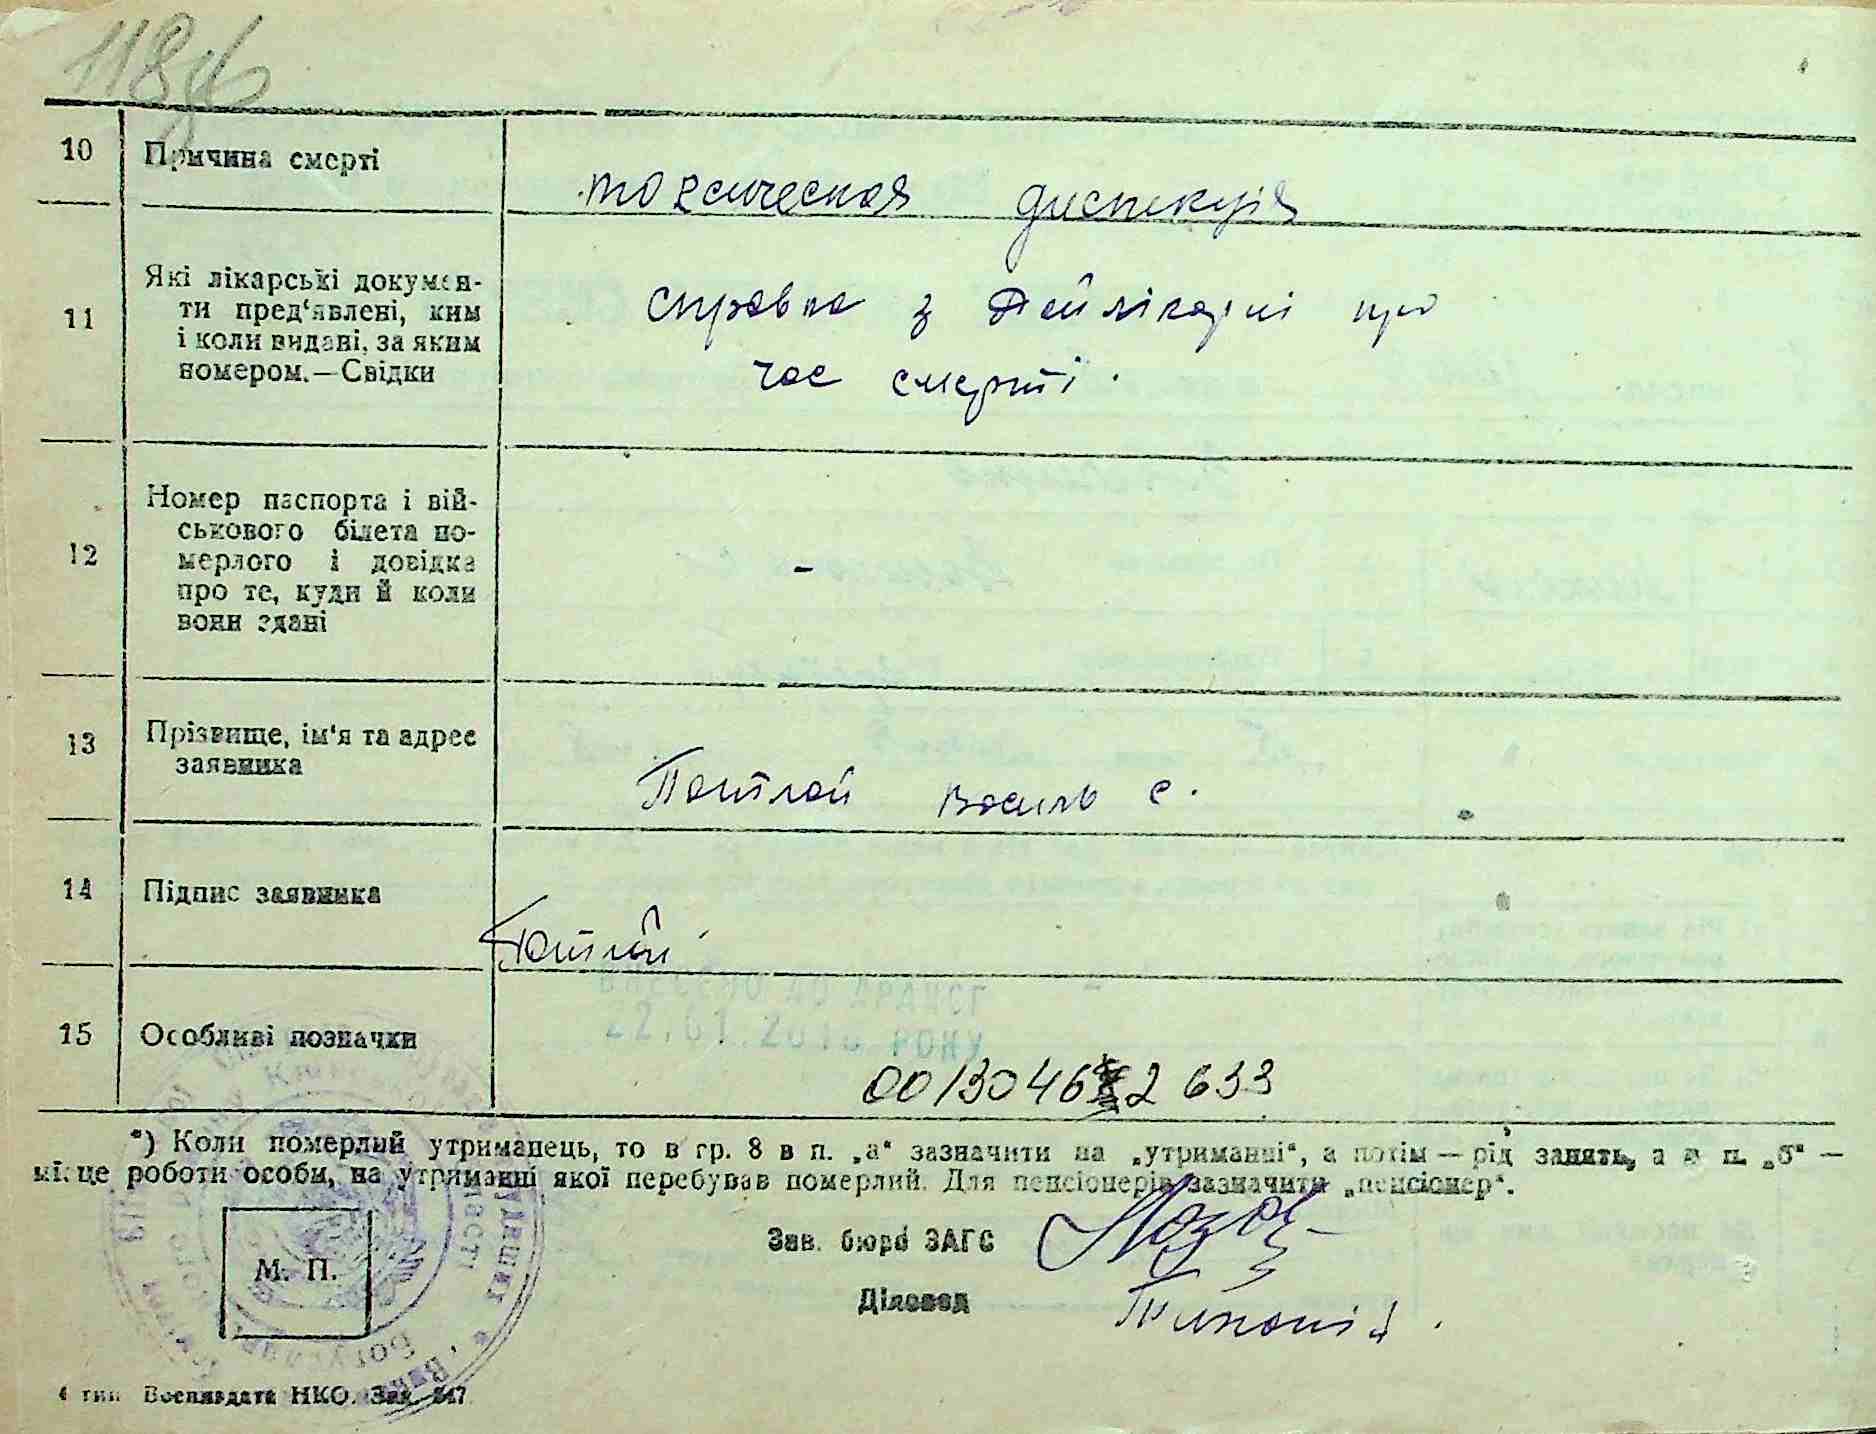 118
10
Причина смерті
токсическая диспекція
11
Які лікарські докумен-
ти пред'явлені, ким
і коли видані, за яким
номером.—Свідки
справка з райлікарні про
час смерті.
12
Номер паспорта і вій-
ськового білета по-
мерлого і довідка
про те, куди й коли
вони здані
-
13
Прізвище, ім'я та адрес
заявника
Потлай Василь С.
14
Підпис заявника
15
Особливі позначки
ВНЕСЕНО ДО ДРАЦСГ
22.01. РОКУ
0013046 2 633
*) Коли померлий утриманець, то в гр. 8 в п. „а" зазначити на „утриманні", а потім — рід занять, а в п. „б" —
місце роботи особи, на утриманні якої перебував померлий. Для пенсіонерів зазначити „пенсіонер".
Зав. бюро ЗАГС
М. П.
Діловод
4 тип Воениздата НКО. Зак. 847